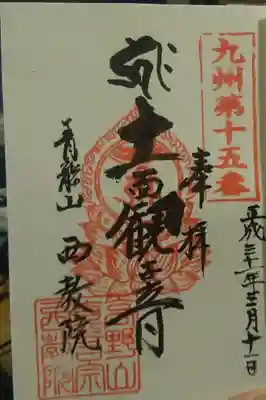 九州第十五番
奉拝
平成三十一年三月十一日
十一面観世音
青龍山 西教院
高野山
真言宗
西教院